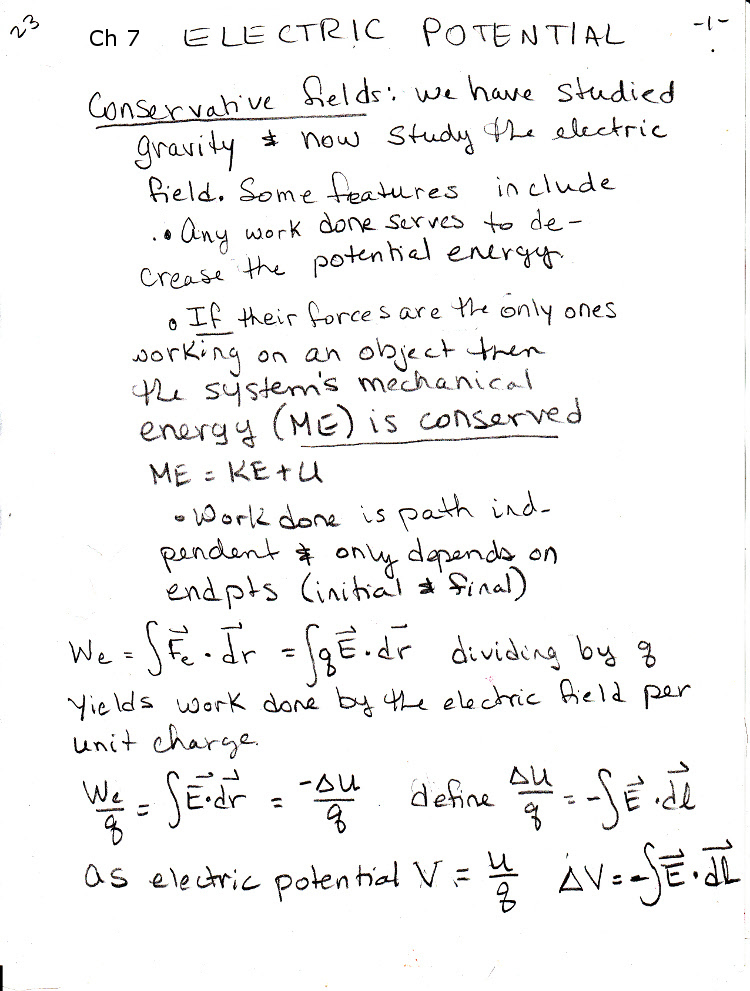 23 Ch 7 ELECTRIC POTENTIAL -1-
Conservative fields: we have studied
gravity & now study the electric
field. Some features include
• Any work done serves to de-
crease the potential energy.
• If their forces are the only ones
working on an object then
the system's mechanical
energy (ME) is conserved
ME = KE + U
• Work done is path ind-
pendent & only depends on
endpts (initial & final)
We = ∫F⃗e · d⃗r = ∫qE⃗ · dr⃗ dividing by q
yields work done by the electric field per
unit charge.
We/q = ∫E⃗ · d⃗r = -ΔU/q define ΔU/q = -∫E⃗ · d⃗l
as electric potential V = U/q ΔV = -∫E⃗ · d⃗l